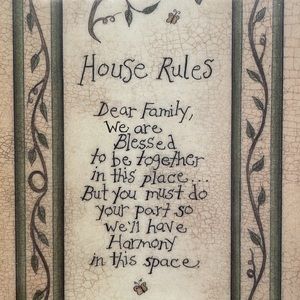 House Rules
Dear Family,
We are
Blessed
to be together
in this place...
But you must do
your part so
we'll have
Harmony
in this space